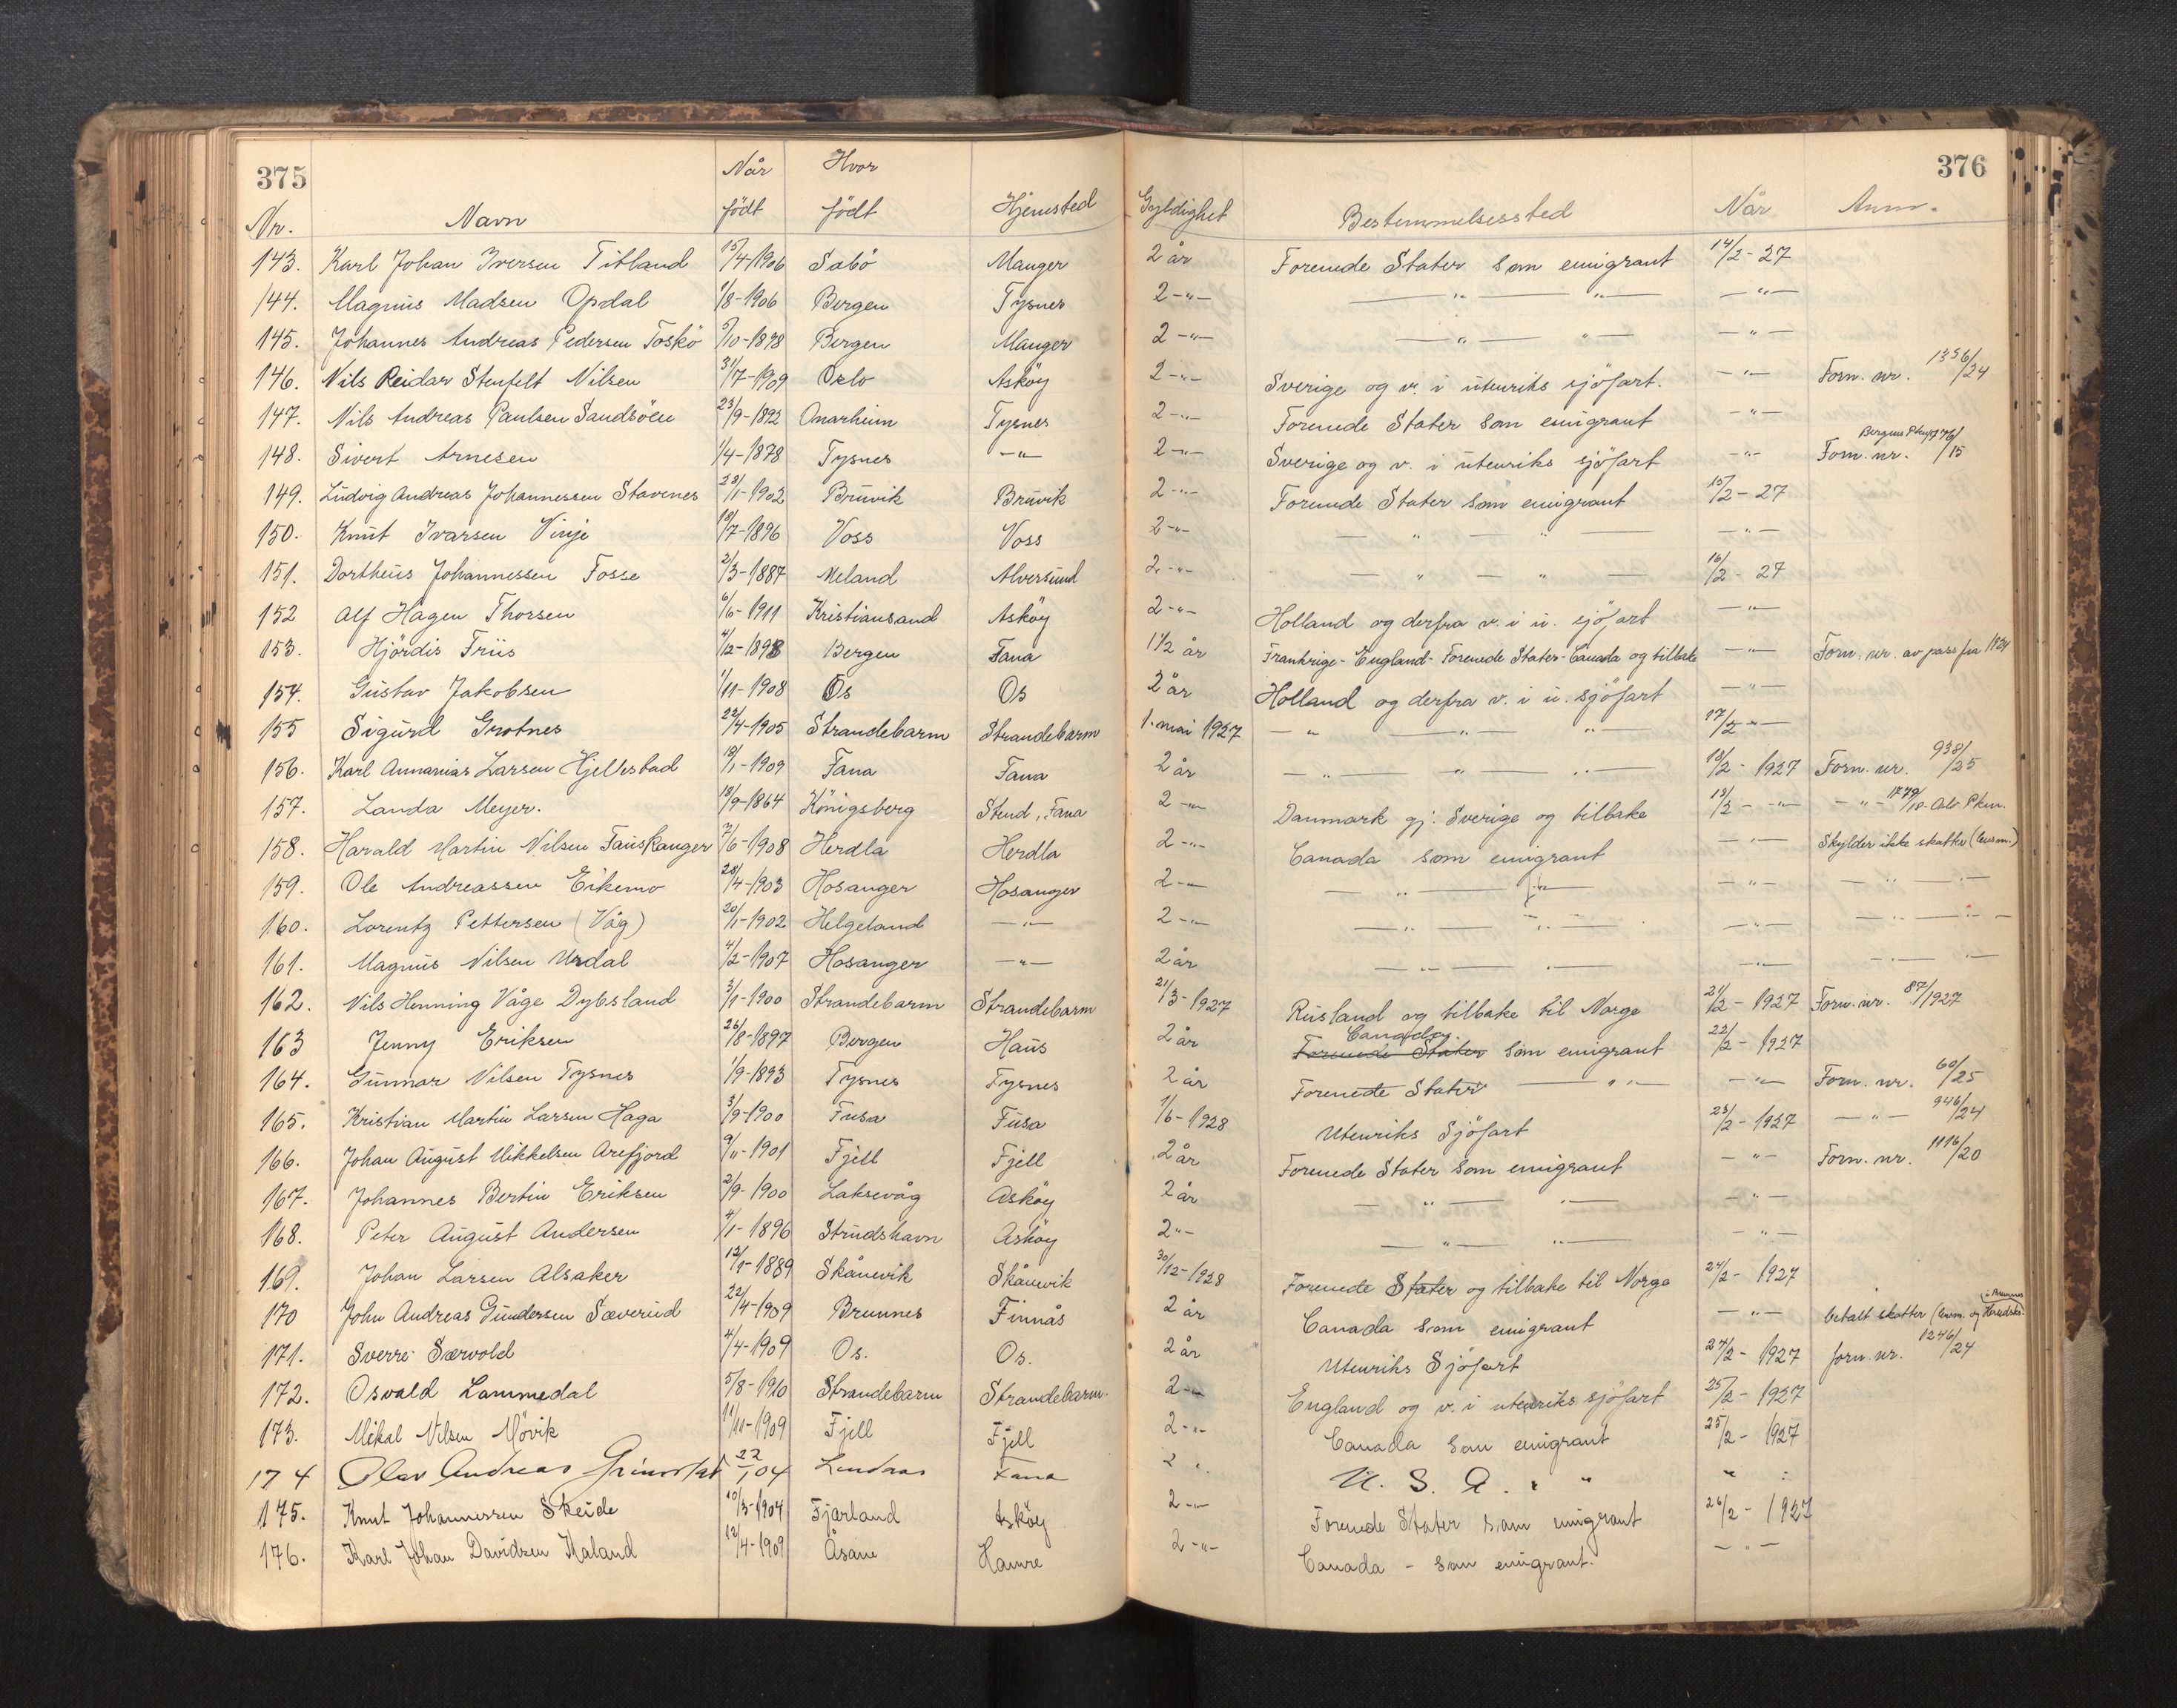 375 376
Når Hvor
Nr. Navn født født Hjemsted Gyldighet Bestemmelsessted Når Anm.
143. Karl Johan Iversen Titland 15/4-1906 Sabö Manger 2 år Forenede Stater som emigrant 14/2-27
144. Magnus Madsen Opdal 1/8-1906 Bergen Tysnes 2 -"- —"— —"— —"—
145. Johannes Andreas Pedersen Toskö 5/10-1898 Bergen Manger 2 -"- —"— "— —"—
146. Nils Reidar Stenfelt Nilsen 31/7-1909 Oslo Asköy 2 -"- Sverige og v. i utenriks sjöfart. —"— Forn. nr. 1356/24
147. Nils Andreas Paulsen Sandsöen 23/9-1892 Onarheim Tysnes 2 -"- Forenede Stater som emigrant -"-
148. Sivert Arnesen 1/4-1878 Tysnes -"- 2 -"- Sverige og v. i utenriks sjöfart -"- Forn. nr. Bergens /15
149. Ludvig Andreas Johannessen Stavenes 28/1-1902 Bruvik Bruvik 2 -"- Forenede Stater som emigrant 15/2-27
150. Knut Ivarsen Vinje 18/7-1896 Voss Voss 2 -"- — " — " — —"—
151. Dortheus Johannessen Fosse 2/3-1887 Meland Alversund 2 -"- — " — " — 16/2-27
152 Alf Hagen Thorsen 6/6-1911 Kristiansand Asköy 2 -"- Holland og derfra v. i u. sjöfart —"—
153. Hjördis Friis 4/2-1898 Bergen Fana 1 1/2 år Frankrige-England-Forenede Stater-Canada og tilbake —"— Forn. nr. av pass fra 1924
154. Gustav Jakobsen 1/11-1908 Os Os 2 år Holland og derfra v. i u. sjöfart —"—
155 Sigurd Grotnes 22/4-1905 Strandebarm Strandebarm 1. mai 1927 — " — " — " — 17/2 -"-
156. Karl Annanias Larsen Hjellestad 18/1-1909 Fana Fana 2 år — " — " — " — 18/2-1927 Forn. nr. 938/25
157. Landa Meyer. 18/9-1864 Königsberg Stend, Fana 2 -"- Danmark gj. Sverige og tilbake 13/2 - -"- - " - 1779/18 Oslo Pkm.
158. Harald Martin Nilsen Fauskanger 7/6-1908 Herdla Herdla 2 -"- Canada som emigrant —"— Skylder ikke skatter (lensm.)
159. Ole Andreassen Eikemo 28/4-1903 Hosanger Hosanger 2 -"- — " — " — —"— — " — " —
160. Lorentz Pettersen (Våg) 20/1-1902 Helgeland —"— 2 -"- — " — " — —"— — " — " —
161. Magnus Nilsen Urdal 4/2-1907 Hosanger —"— 2 år — " — " — —"— — " — " —
162. Nils Henning Våge Dybsland 3/1-1900 Strandebarm Strandebarm 21/3-1927 Rusland og tilbake til Norge 21/2-1927 Forn. nr. 87/1927
163 Jenny Eriksen 26/8-1897 Bergen Haus 2 år Forenede Stater Canada som emigrant 22/2-1927
164. Gunnar Nilsen Tysnes 1/9-1893 Tysnes Tysnes 2 år Forenede Stater — " — —"— Forn. nr. 60/25
165. Kristian Martin Larsen Haga 3/9-1900 Fusa Fusa 1/6-1928 Utenriks Sjöfart 23/2-1927 — " — 946/24
166. Johan August Mikkelsen Arefjord 9/11-1901 Fjell Fjell 2 år Forenede Stater som emigrant —"— Forn. nr. 1116/20
167. Johannes Bertin Eriksen 2/9-1900 Laksevåg Asköy 2 år — " — " — —"—
168. Peter August Andersen 4/1-1896 Strudshavn Asköy 2 "- — " — " — —"—
169. Johan Larsen Alsaker 12/1-1889 Skånevik Skånevik 30/12-1928 Forenede Stater og tilbake til Norge 24/2-1927
170 John Andreas Gundersen Sæverud 22/4-1909 Bremnes Finnås 2 år Canada som emigrant —"— betalt skatter (lensm. og Herredsk. i Bremnes)
171. Sverre Særvold 4/4-1909 Os. Os. 2 år Utenriks Sjöfart 24/2-1927 forn. nr. 1246/24
172. Osvald Lammedal 5/8-1910 Strandebarm Strandebarm. 2 -"- England og v. i utenriks sjöfart 25/2-1927
173. Mikal Nilsen Mövik 11/11-1909 Fjell Fjell 2 -"- Canada som emigrant 25/2-1927
174 Olav Andreas Grimstad 22/1 04 Lindaas Fana 2 " U. S. A. " " " "
175. Knut Johannessen Skeide 10/3-1904 Fjærland Asköy 2 -"- Forenede Stater som emigrant 26/2-1927
176. Karl Johan Davidsen Kaland 12/4-1909 Åsane Hamre 2 -"- Canada - som emigrant. — " —